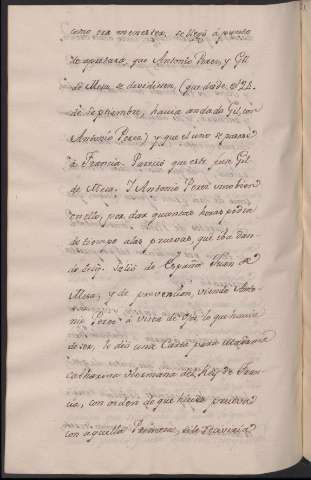 como era menester, se llegó á punto
de apretara, que Antonio Perez, y Gil
de Mesa se devidiesen, (que desde el 24.
de Septiembre, havia andado Gil, con
Antonio Perez) y que el uno se pasase
á Francia. Pareció que este fuese Gil
de Mesa. Y Antonio Perez vino bien
en ello, por dar quantas horas podia
de tiempo alas pruevas, que iba dan-
do de si. Salió de España Juan de
Mesa, y de prevencion, viendo Anto-
nio Perez á vista de ojo lo que havia
de ser, le dió una Carta para Madama
Catharina Hermana del Rey de Fran-
cia, con orden de que hiciese prueva
con aquella Princesa, si le serviria